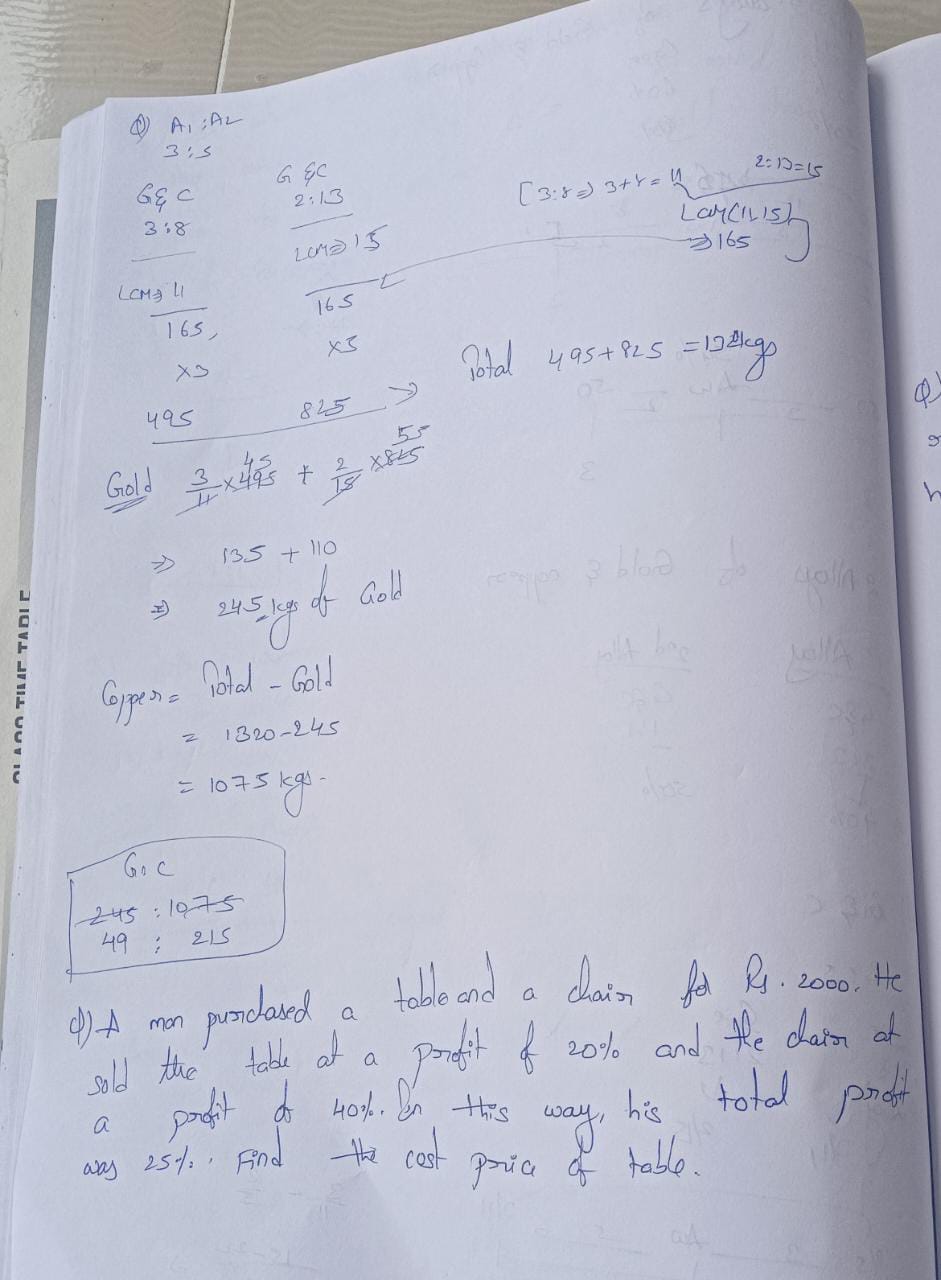 Q) A1 : A2
3 : 5
G & C
3 : 8
G & C
2 : 13
[3:8 => 3+8 = 11
2:13=15
LCM(11,15)
=> 165
LCM => 11
LCM => 15
165
165
×3
×5
495
825
Total 495+825 = 1320kgs
Gold 3/11 × 495 + 2/15 × 825
45
55
=> 135 + 110
=> 245 kgs of Gold
Copper = Total - Gold
= 1320-245
= 1075 kgs.
G : C
245 : 1075
49 : 215
Q) A man purchased a table and a chair for Rs. 2000. He
sold the table at a profit of 20% and the chair at
a profit of 40%. In this way, his total profit
was 25%. Find the cost price of table.
CLASS TIME TABLE
Q)